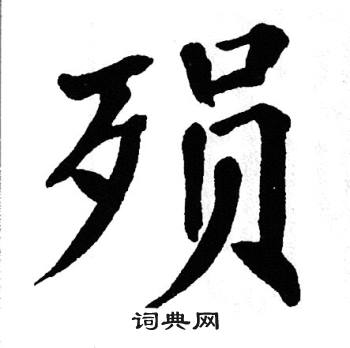 殒
词典网